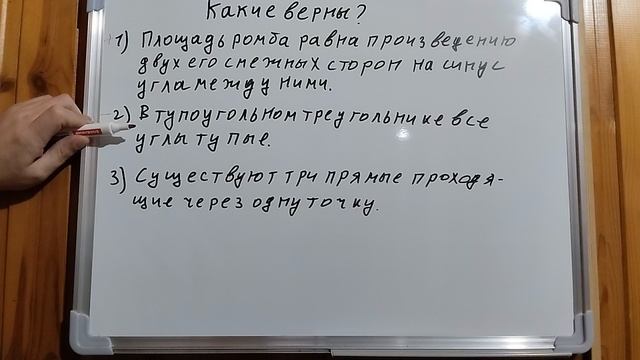 Какие верны?
1) Площадь ромба равна произведению
двух его смежных сторон на синус
угла между ними.
2) В тупоугольном треугольнике все
углы тупые.
3) Существуют три прямые проходя-
щие через одну точку.